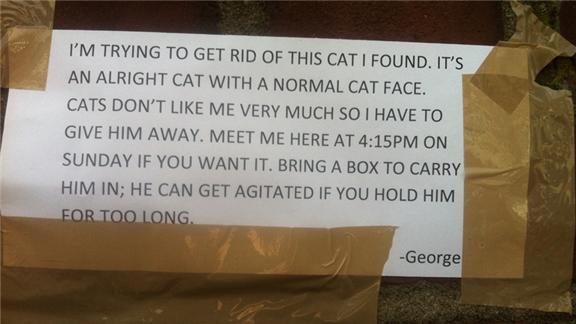 I'M TRYING TO GET RID OF THIS CAT I FOUND. IT'S
AN ALRIGHT CAT WITH A NORMAL CAT FACE.
CATS DON'T LIKE ME VERY MUCH SO I HAVE TO
GIVE HIM AWAY. MEET ME HERE AT 4:15PM ON
SUNDAY IF YOU WANT IT. BRING A BOX TO CARRY
HIM IN; HE CAN GET AGITATED IF YOU HOLD HIM
FOR TOO LONG.
-George